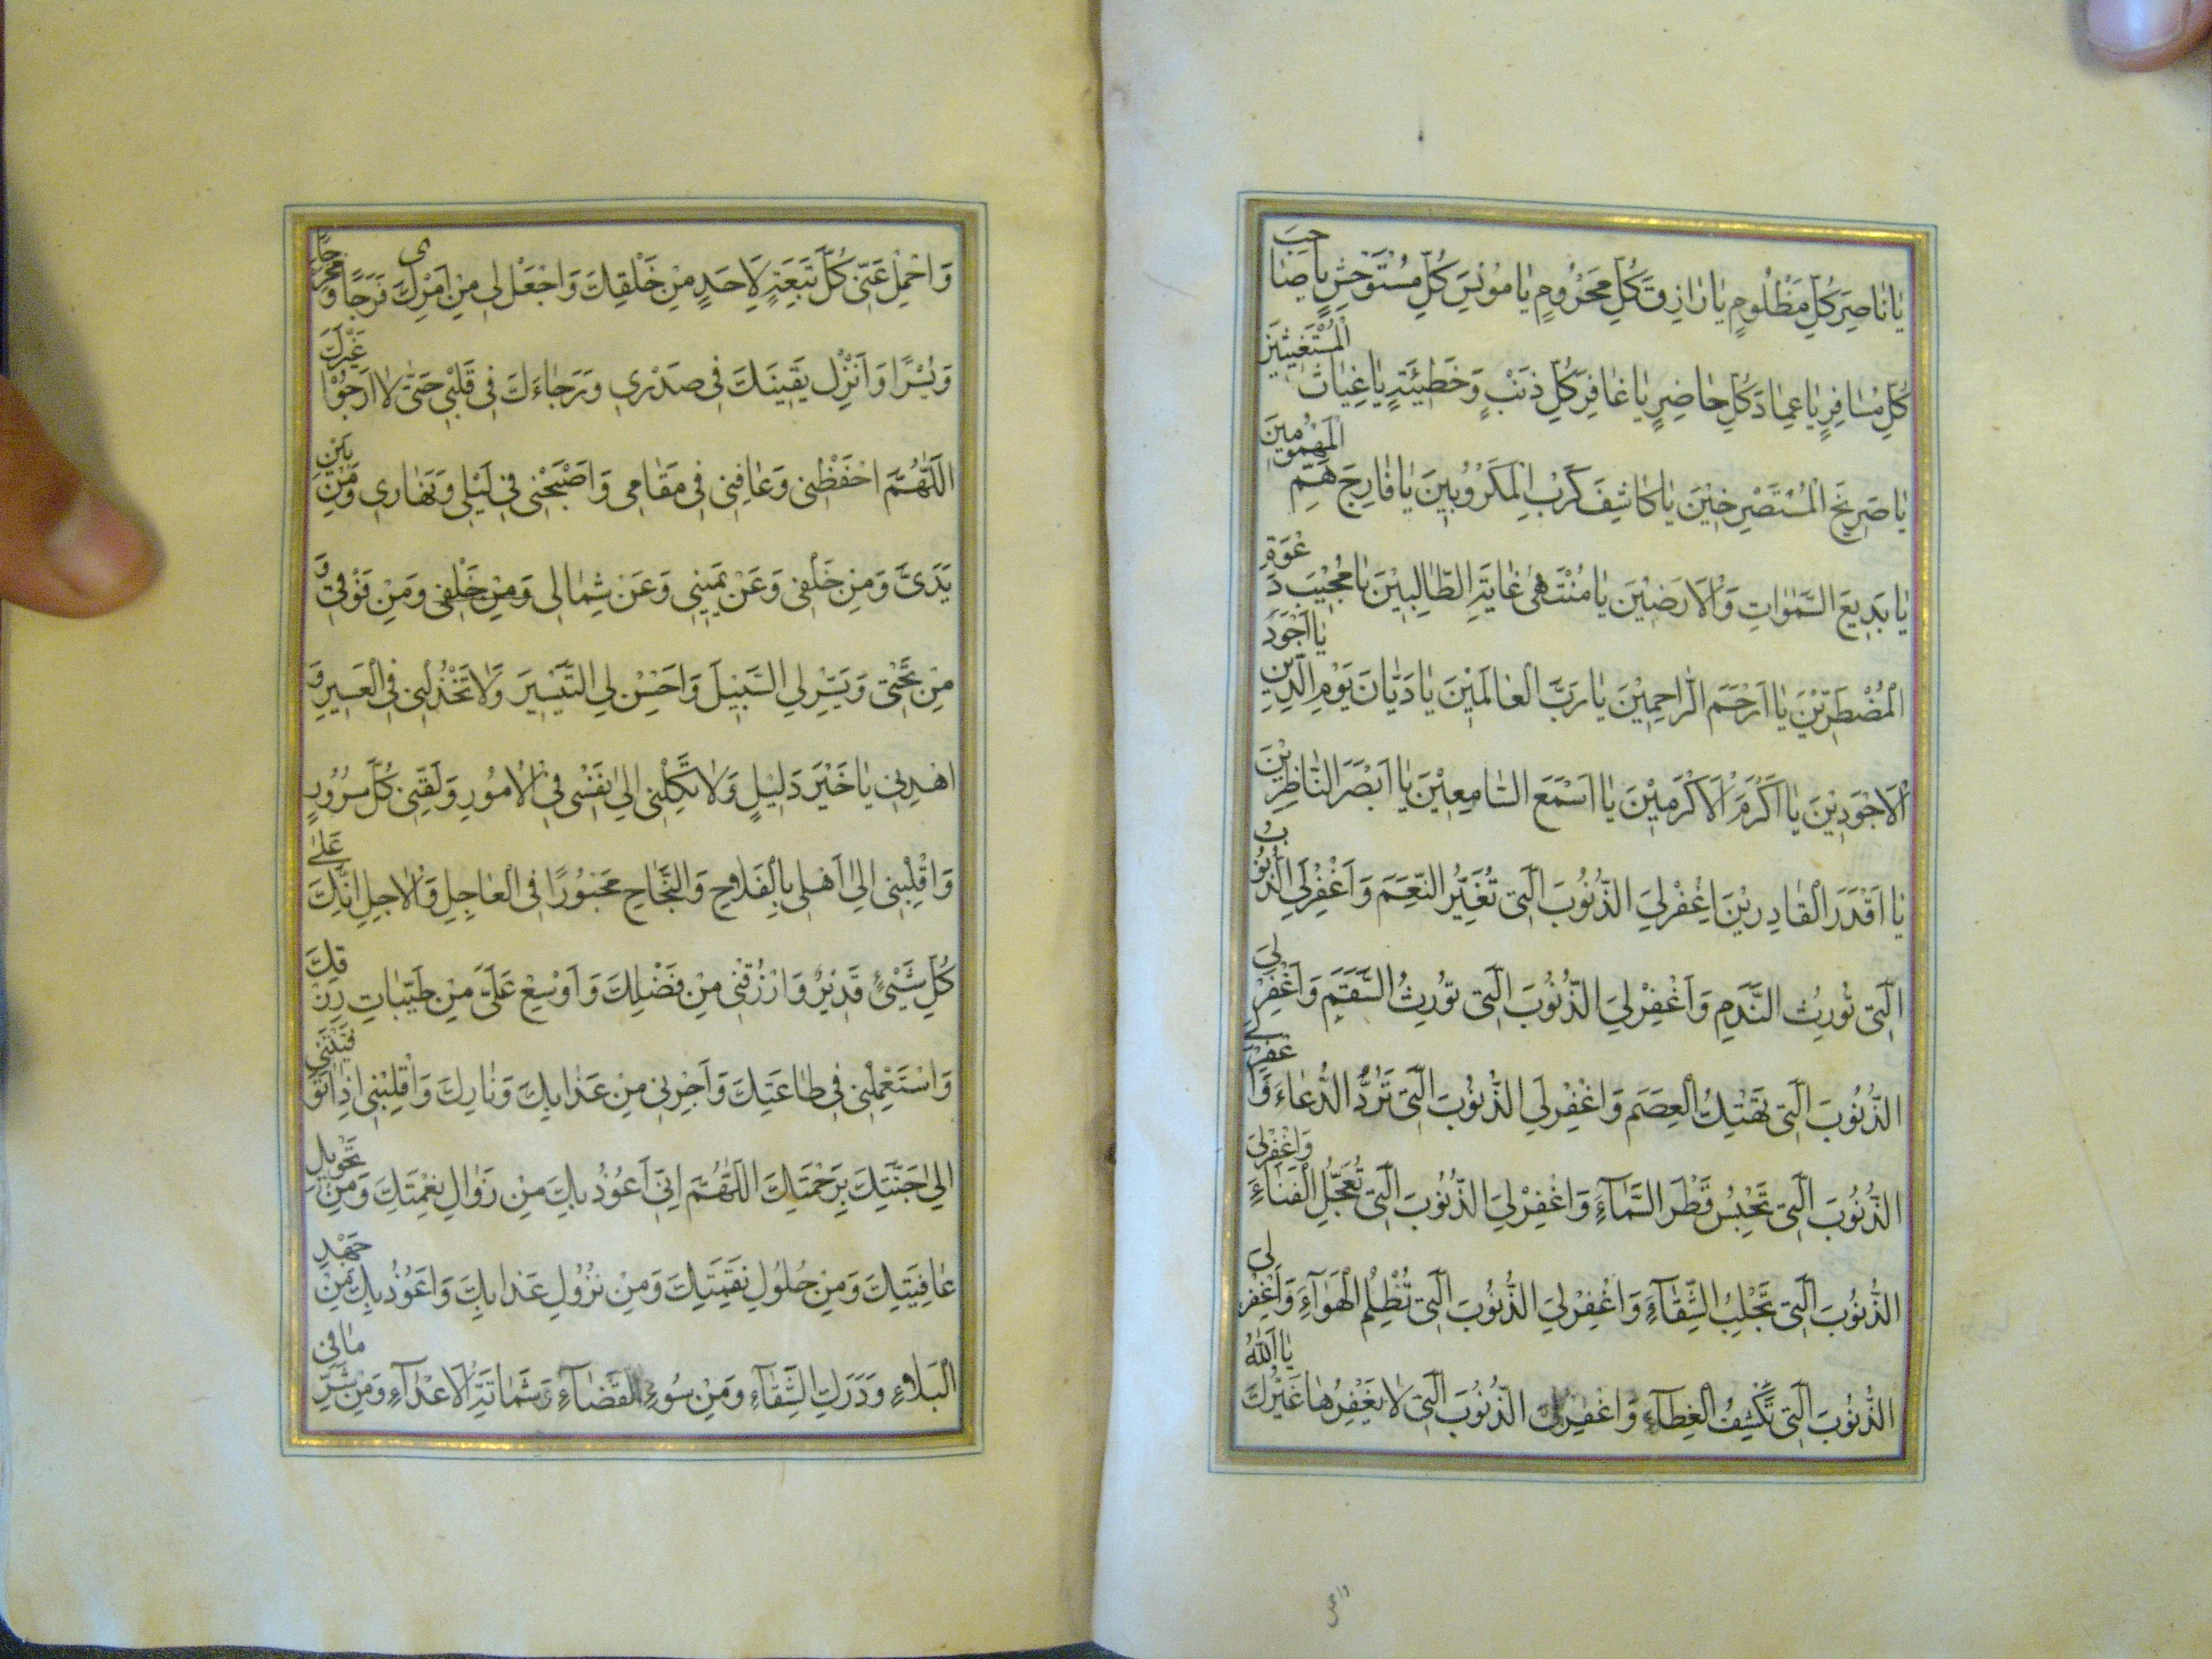 يَا نَاصِرَ كُلِّ مَظْلُومٍ يَا رَازِقَ كُلِّ مَحْرُومٍ يَا مُونِسَ كُلِّ مُسْتَوْحِشٍ يَا صَاحِبَ
كُلِّ مُسَافِرٍ يَا عِمَادَ كُلِّ حَاضِرٍ يَا غَافِرَ كُلِّ ذَنْبٍ وَخَطِيئَةٍ يَا غِيَاثَ الْمُسْتَغِيثِينَ
يَا صَرِيخَ الْمُسْتَصْرِخِينَ يَا كَاشِفَ كَرْبِ الْمَكْرُوبِينَ يَا فَارِجَ هَمِّ الْمَهْمُومِينَ
يَا بَدِيعَ السَّمٰوَاتِ وَالْاَرَضِينَ يَا مُنْتَهٰى غَايَةِ الطَّالِبِينَ يَا مُجِيبَ دَعْوَةِ
الْمُضْطَرِّينَ يَا اَرْحَمَ الرَّاحِمِينَ يَا رَبَّ الْعَالَمِينَ يَا دَيَّانَ يَوْمِ الدِّينِ يَا اَجْوَدَ
الْاَجْوَدِينَ يَا اَكْرَمَ الْاَكْرَمِينَ يَا اَسْمَعَ السَّامِعِينَ يَا اَبْصَرَ النَّاظِرِينَ
يَا اَقْدَرَ الْقَادِرِينَ اِغْفِرْ لِيَ الذُّنُوبَ الَّتِي تُغَيِّرُ النِّعَمَ وَاغْفِرْ لِيَ الذُّنُوبَ
الَّتِي تُورِثُ النَّدَمَ وَاغْفِرْ لِيَ الذُّنُوبَ الَّتِي تُورِثُ السَّقَمَ وَاغْفِرْ لِيَ
الذُّنُوبَ الَّتِي تَهْتِكُ الْعِصَمَ وَاغْفِرْ لِيَ الذُّنُوبَ الَّتِي تَرُدُّ الدُّعَاءَ وَاغْفِرْ لِيَ
الذُّنُوبَ الَّتِي تَحْبِسُ قَطْرَ السَّمَآءِ وَاغْفِرْ لِيَ الذُّنُوبَ الَّتِي تُعَجِّلُ الْفَنَآءَ وَاغْفِرْ لِيَ
الذُّنُوبَ الَّتِي تَجْلِبُ الشَّقَآءَ وَاغْفِرْ لِيَ الذُّنُوبَ الَّتِي تُظْلِمُ الْهَوَآءَ وَاغْفِرْ لِيَ
الذُّنُوبَ الَّتِي تَكْشِفُ الْغِطَآءَ وَاغْفِرْ لِيَ الذُّنُوبَ الَّتِي لَا يَغْفِرُهَا غَيْرُكَ يَا اَللّٰهُ
وَاحْمِلْ عَنِّي كُلَّ تَبِعَةٍ لِاَحَدٍ مِنْ خَلْقِكَ وَاجْعَلْ لِي مِنْ اَمْرِي فَرَجًا وَمَخْرَجًا
وَيُسْرًا وَاَنْزِلْ يَقِينَكَ فِي صَدْرِي وَرَجَاءَكَ فِي قَلْبِي حَتّٰى لَا اَرْجُوْا غَيْرَكَ
اَللّٰهُمَّ احْفَظْنِي وَعَافِنِي فِي مَقَامِي وَاصْحَبْنِي فِي لَيْلِي وَنَهَارِي وَمِنْ بَيْنِ
يَدَيَّ وَمِنْ خَلْفِي وَعَنْ يَمِينِي وَعَنْ شِمَالِي وَمِنْ خَلْفِي وَمِنْ فَوْقِي وَ
مِنْ تَحْتِي وَيَسِّرْ لِي السَّبِيلَ وَاَحْسِنْ لِي التَّيْسِيرَ وَلَا تَخْذُلْنِي فِي الْعَسِيرِ وَ
اهْدِنِي يَا خَيْرَ دَلِيلٍ وَلَا تَكِلْنِي اِلٰى نَفْسِي فِي الْاُمُورِ وَلَقِّنِي كُلَّ سُرُورٍ
وَاقْلِبْنِي اِلٰى اَهْلِي بِالْفَلَاحِ وَالنَّجَاحِ مَحْبُورًا فِي الْعَاجِلِ وَالْاٰجِلِ اِنَّكَ عَلٰى
كُلِّ شَيْئٍ قَدِيرٌ وَارْزُقْنِي مِنْ فَضْلِكَ وَاَوْسِعْ عَلَيَّ مِنْ طَيِّبَاتِ رِزْقِكَ
وَاسْتَعْمِلْنِي فِي طَاعَتِكَ وَاَجِرْنِي مِنْ عَذَابِكَ وَنَارِكَ وَاقْلِبْنِي اِذَا تَوَفَّيْتَنِي
اِلٰى جَنَّتِكَ بِرَحْمَتِكَ اَللّٰهُمَّ اِنِّي اَعُوذُ بِكَ مِنْ زَوَالِ نِعْمَتِكَ وَمِنْ تَحْوِيلِ
عَافِيَتِكَ وَمِنْ حُلُولِ نِقْمَتِكَ وَمِنْ نُزُولِ عَذَابِكَ وَاَعُوذُ بِكَ مِنْ جَهْدِ
الْبَلَاءِ وَدَرَكِ الشَّقَآءِ وَمِنْ سُوءِ الْقَضَآءِ وَشَمَاتَةِ الْاَعْدَآءِ وَمِنْ شَرِّ مَا فِي